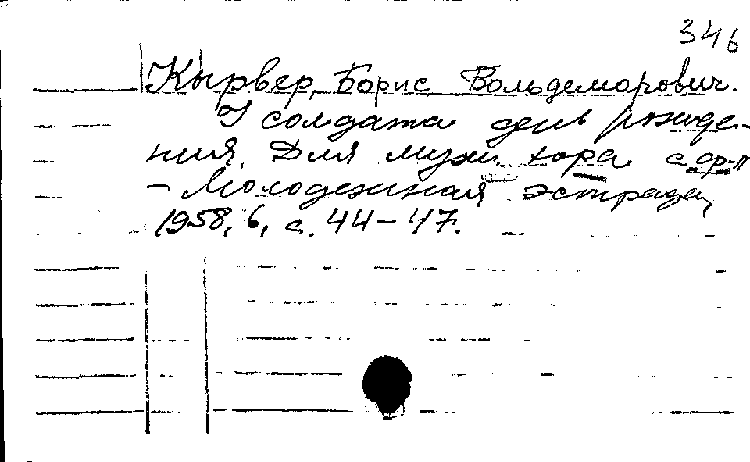 346
Кырвер, Борис Вольдемарович.
У солдата день рожде-
ния. Для муж. хора с ф-п
– Молодежная эстрада,
1958, 6, с. 44–47.